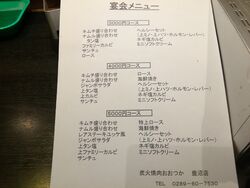 宴会メニュー
3000円コース
キムチ盛り合わせ ヘルシーセット
ナムル盛り合わせ (上ミノ・上ハツ・ホルモン・レバー)
タン塩 ネギ塩カルビ
ファミリーカルビ ミニソフトクリーム
サンチュ
ロース
4000円コース
キムチ盛り合わせ ロース
ナムル盛り合わせ 海鮮焼き
ジャンボサラダ ヘルシーセット
上タン塩 (上ミノ・上ハツ・ホルモン・レバー)
上カルビ ネギ塩カルビ
サンチュ ミニソフトクリーム
5000円コース
キムチ盛り合わせ 特上ロース
ナムル盛り合わせ 海鮮焼き
レアステーキユッケ風 ヘルシーセット
ジャンボサラダ (上ミノ・上ハツ・ホルモン・レバー)
上タン塩 ネギ塩カルビ
上ファミリーカルビ ミニソフトクリーム
サンチュ
炭火焼肉おおつか 鹿沼店
TEL 0289-60-7530